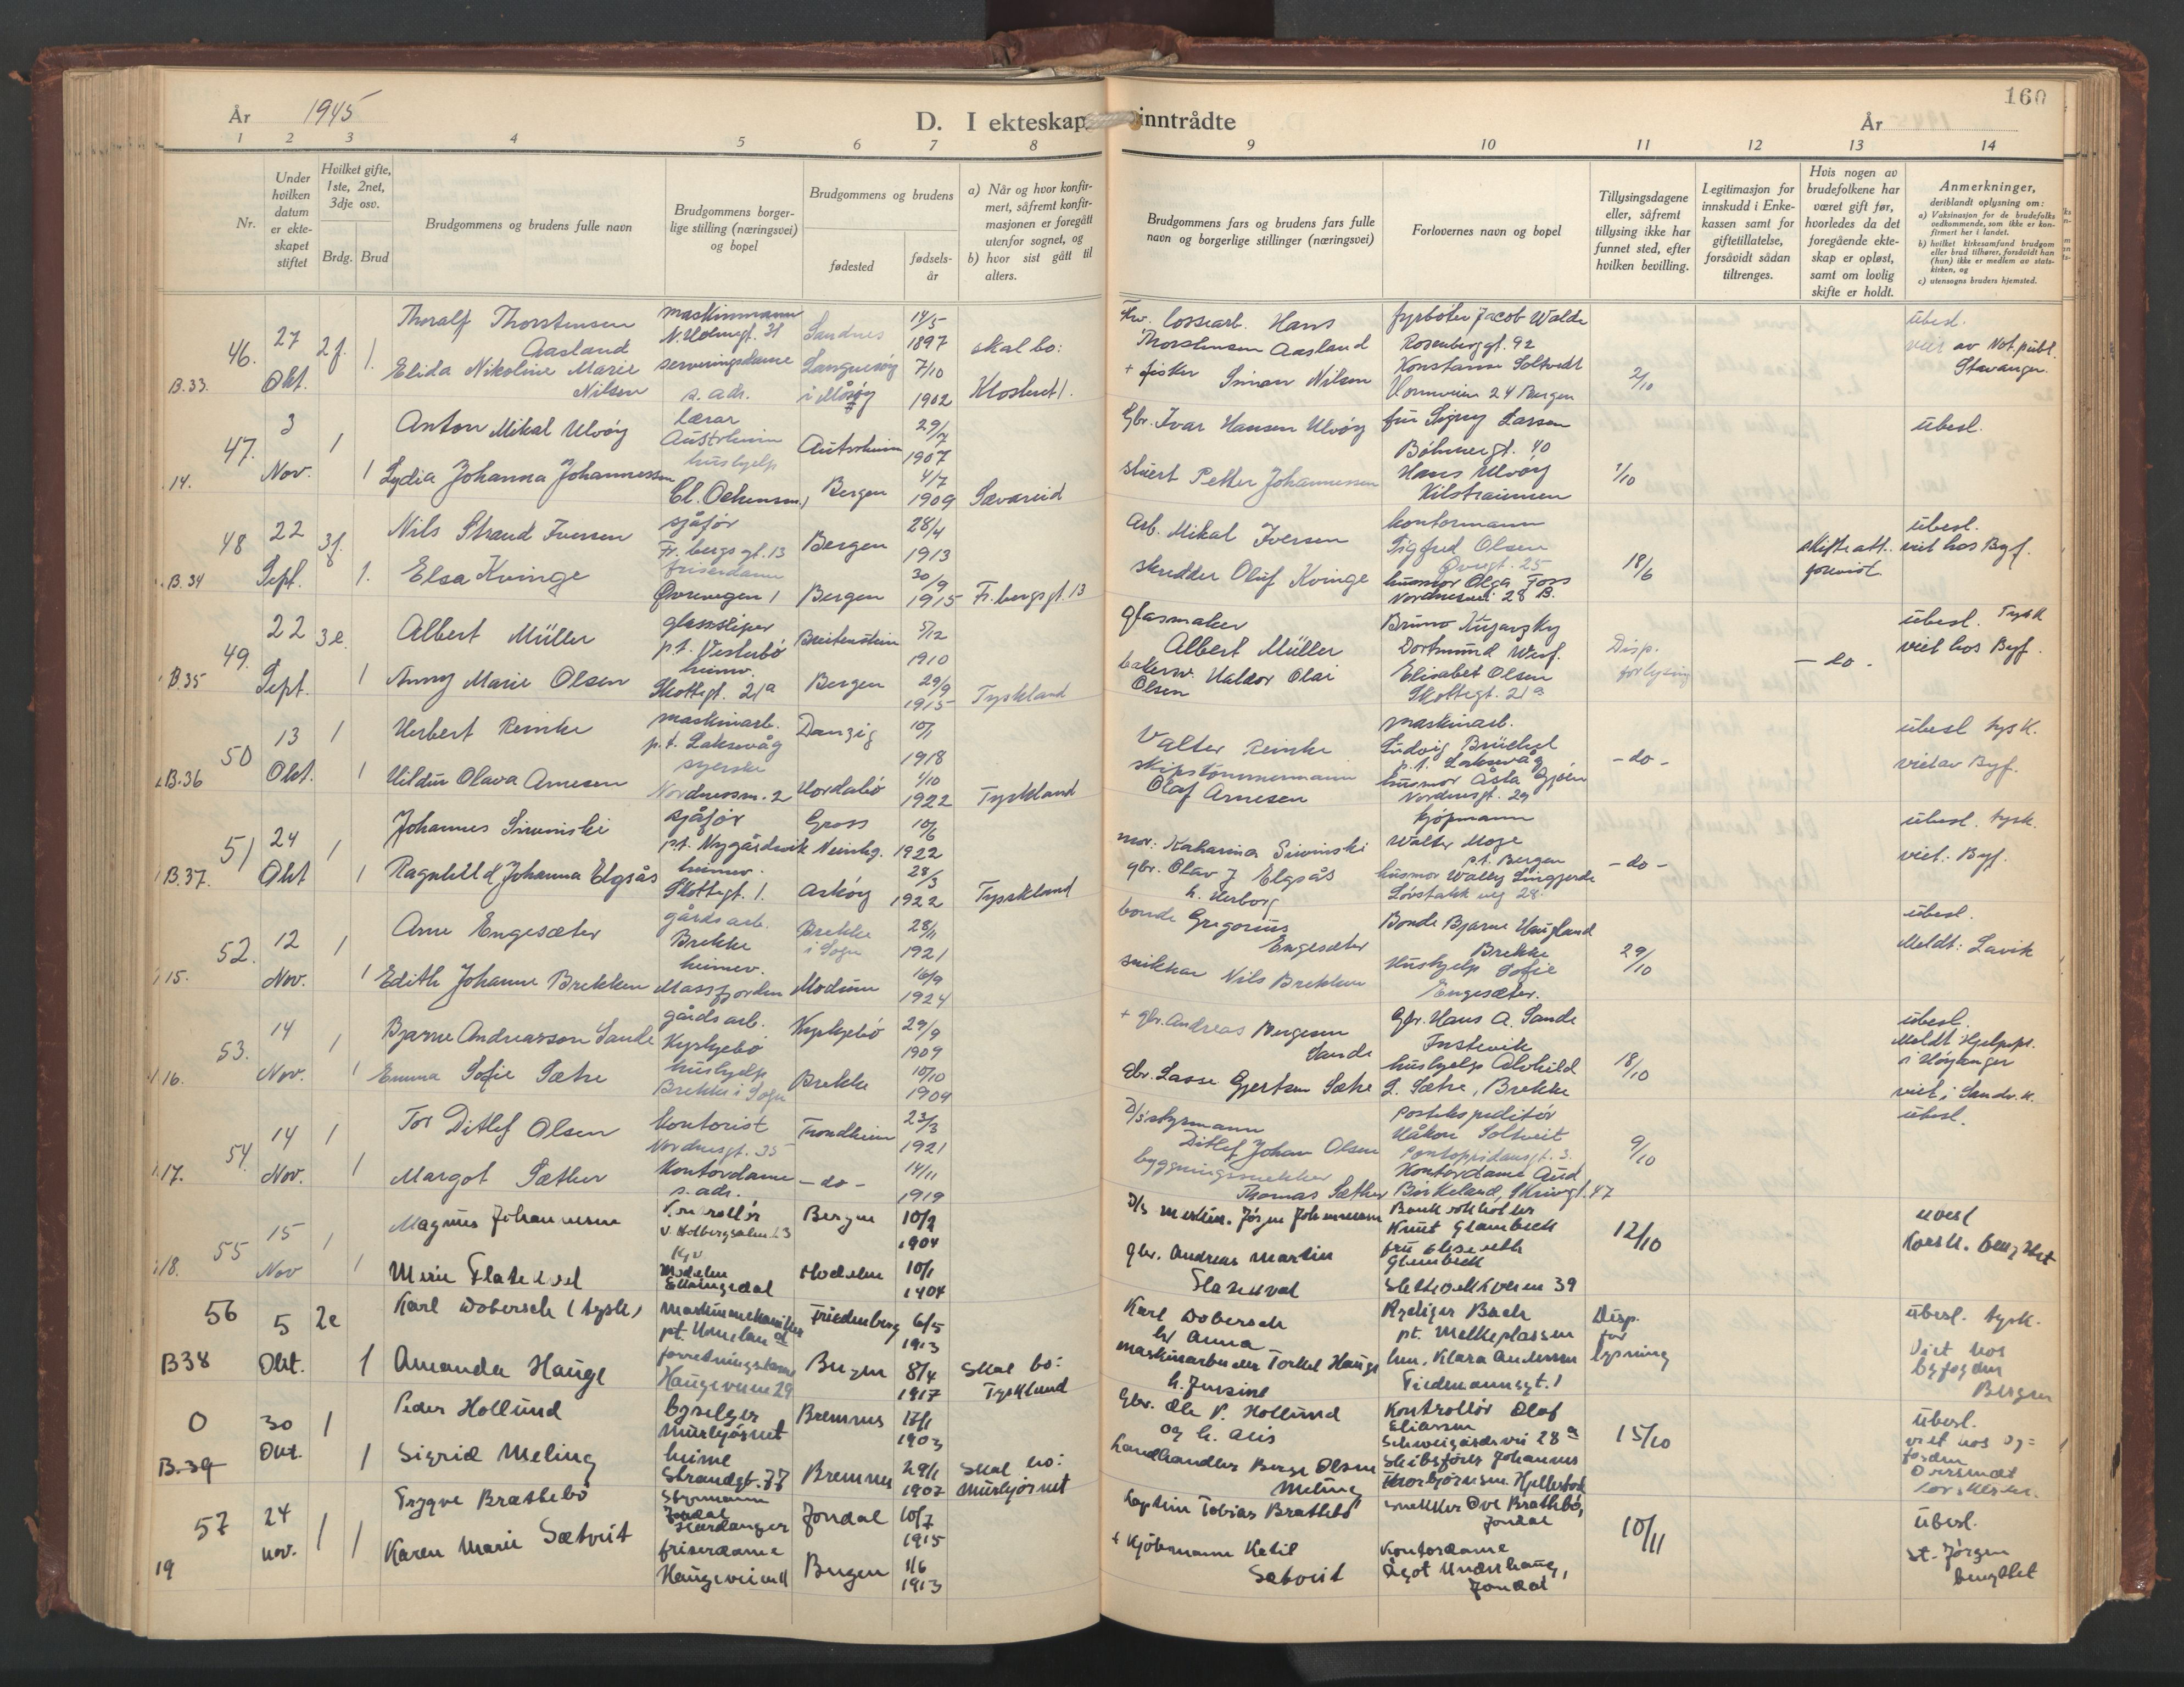 År 1945
D. I ekteskap inntrådte
160
År
1 2 3 4 5 6 7 8 9 10 11 12 13 14
Nr.
Under hvilken datum er ekteskapet stiftet
Hvilket gifte, 1ste, 2net, 3dje osv.
Brdg. Brud
Brudgommens og brudens fulle navn
Brudgommens borgerlige stilling (næringsvei) og bopel
Brudgommens og brudens
fødested
fødselsår
a) Når og hvor konfirmert, såfremt konfirmasjonen er foregått utenfor sognet, og
b) hvor sist gått til alters.
Brudgommens fars og brudens fars fulle navn og borgerlige stillinger (næringsvei)
Forlovernes navn og bopel
Tillysingsdagene eller, såfremt tillysing ikke har funnet sted, efter hvilken bevilling.
Legitimasjon for innskudd i Enkekassen samt for giftetillatelse, forsåvidt sådan tiltrenges.
Hvis nogen av brudefolkene har været gift før, hvorledes da det foregående ekteskap er opløst, samt om lovlig skifte er holdt.
Anmerkninger, deriblandt oplysning om:
a) Vaksinasjon for de brudefolks vedkommende, som ikke er konfirmert her i landet.
b) hvilket kirkesamfund brudgom eller brud tilhører, forsåvidt han (hun) ikke er medlem av statskirken, og
c) utensogns bruders hjemsted.
46. B.33. 27 Okt. 2f. 1.
Thoralf Thorstensen Aasland
maskinmann
Sandnes
14/5 1897
skal bo:
Hans Thorstensen Aasland
fyrbøter Jacob Walde
Rosenberggt. 92
ubesl.
viet av Not. publ. Stavanger.
Elida Nikoline Marie Nilsen
serveringsdame
s. adr.
7/10 1902
Klosteret 1.
+ fisker Simon Nilsen
Konstanse Soltvedt
24 Bergen
2/10
47. 14. 3 Nov. 1 1
Anton Mikal Ulvøy
lærar
Austrheim
Austrheim
29/7 1907
Gbr. Ivar Hansen Ulvøy
fru Signy Larsen
Bøhmergt. 40
ubesl.
Lydia Johanna Johannessen
hushjelp
Bergen
4/7 1909
Sævareid
stuert Petter Johannessen
Hans Ulvøy
Kilstraumen
1/10
48 B.34 22 Sept. 3f. 1.
Nils Strand Iversen
sjåfør
Fr. bergsgt. 13
Bergen
28/4 1913
Arb. Mikal Iversen
kontormann
Sigfred Olsen
Øvregt. 25
18/6
skifte att. forevist
ubesl.
viet hos Byf.
Elsa Kvinge
friserdame
Øvrevegen 1
Bergen
30/9 1915
Fr. bergsgt. 13
skredder Oluf Kvinge
husmor Olga Foss
Nordnesvei 28 B.
49. B.35 22 Sept. 3e. 1
Albert Müller
glassliper
p.t. Vesterbø
Breitenstein
5/12 1910
glasmaker Albert Müller
Bruno Kujarzky
Dortmund
Disp. for lysing
- do -
ubesl. Tysk
viet hos Byf.
Anny Marie Olsen
heimv.
Skottegt. 21a
Bergen
29/9 1915
Tyskland
Haldor Olai Olsen
Elisabet Olsen
Skottegt. 21a
50 B.36 13 Okt. 1 1
Herbert Reinke
maskinarb.
p.t. Laksevåg
Danzig
10/1 1918
Valter Reinke
maskinarb.
Ludvig Brüchel
p.t. Laksevåg
- do -
ubesl tysk.
viet av Byf.
Hildur Olava Arnesen
syerske
Nordnessm. 2
Hordabø
1/10 1922
Tyskland
skipstømmermann Olaf Arnesen
husmor Åsta Gjøen
Nordnesgt. 29
51 B.37. 24 Okt 1 1
Johannes Siwinski
sjåfør
p.t. Nygårdsvik
Gross
10/6 1922
mor: Katharina Siwinski
kjøpmann
Walter Moge
p.t. Bergen
- do -
ubesl. tysk.
viet: Byf.
Ragnhild Johanna Elgsås
heimev.
Skottegt. 1.
Askøy
28/3 1922
Tyskland
gbr. Olav J Elgsås
h. Herborg
husmor Wally Lingjerde
Løvstakkveg 28
52. 15. 12 Nov. 1 1
Arne Engesæter
gårdsarb.
Brekke
Brekke i Sogn
28/11 1921
bonde Gregorius Engesæter
Bonde Bjarne Haugland
Brekke
29/10
ubesl.
Meldt: Lavik
Edith Johanne Brekken
heimev.
Massfjorden
Modum
16/9 1924
snikkar Nils Brekken
Hushjelp Sofie Engesæter.
53. 16. 14 Nov. 1 1
Bjarne Andreasson Sande
gårdsarb.
Kyrkjebø
Kyrkjebø
29/9 1909
+ gbr. Andreas Børgesen Sande
Gbr. Hans A. Sande
Instevik
18/10
ubesl.
Meldt Hjelpepr. i Høyanger
viet i Sandv. k.
Emma Sofie Sætre
hushjelp
Brekke i Sogn
Brekke
10/10 1904
Gbr. Lasse Gjertsen Sætre
hushjelp Alvhild L. Sætre, Brekke
54. 17. 14 Nov. 1 1
Tor Ditlef Olsen
kontorist
Nordnesgt. 35
Trondheim
23/3 1921
D/s styrmann Ditlef Johan Olsen
Postekspeditør
Håkon Soltveit
Pontoppidansgt. 3.
9/10
ubesl.
Margot Sæther
Kontordame
s. adr.
- do -
14/11 1919
byggningssnekker Thomas Sæther
Kontordame Aud Birkeland, Skivegt. 47
55 18. 15 Nov 1 1
Magnus Johannesen
Kontrollør
Bergen
10/2 1904
D/s maskin. Jørgen Johannesen
Bankbokholder
Knut Glambeck
12/10
ubesl
Korsk. benyttet
Merie Flatekval
Modalen
Eksingedal
Modalen
10/1 1904
gbr. Andreas Martin Flatekval
fru Elisabeth Glambeck
Slettebakkveien 39
56 B38 5 Okt. 2e 1
Karl Dobersch (tysk)
Maskinmekaniker
Friedenberg
6/5 1913
Karl Dobersch h/ Anna
Rydiger Bach
pt. Melkeplassen
Disp. for lysning
ubesl. tysk.
Viet hos byfogden Bergen
Amanda Hauge
forretningsdame
Haugeveien 29
Bergen
8/4 1917
skal bo: Tyskland
maskinarbeider Torkel Hauge
h. Jensine
hm. Klara Andersen
Tiedemannsgt. 1
0 B.39 30 Okt. 1 1
Peder Hollund
byselger
Murhjørnet
Bremnes
17/1 1903
Gbr. Ole P. Hollund
og h. Alis
Kontrollør Olaf Eliassen
Schweigaardsvei 28a
15/10
ubesl.
Sigrid Meling
heime
Strandgt. 77
Bremnes
29/1 1907
skal bo: Murhjørnet
Landhandler Berge Olsen Meling
Skibsfører Johannes Thorbjørnsen
57 19 24 nov. 1 1
Trygve Brattebø
Styrmann
Jondal
Hardanger
Jondal
10/7 1915
kaptein Tobias Brattebø
snekker Ove Brattebø, Jondal
10/11
ubesl.
St. Jørgen benyttet
Karen Marie Sætveit
friserdame
Haugeveien 11
Bergen
1/6 1913
+ Kjøbmann Ketil Sætveit
Kontordame
Ågot Underhaug, Jondal